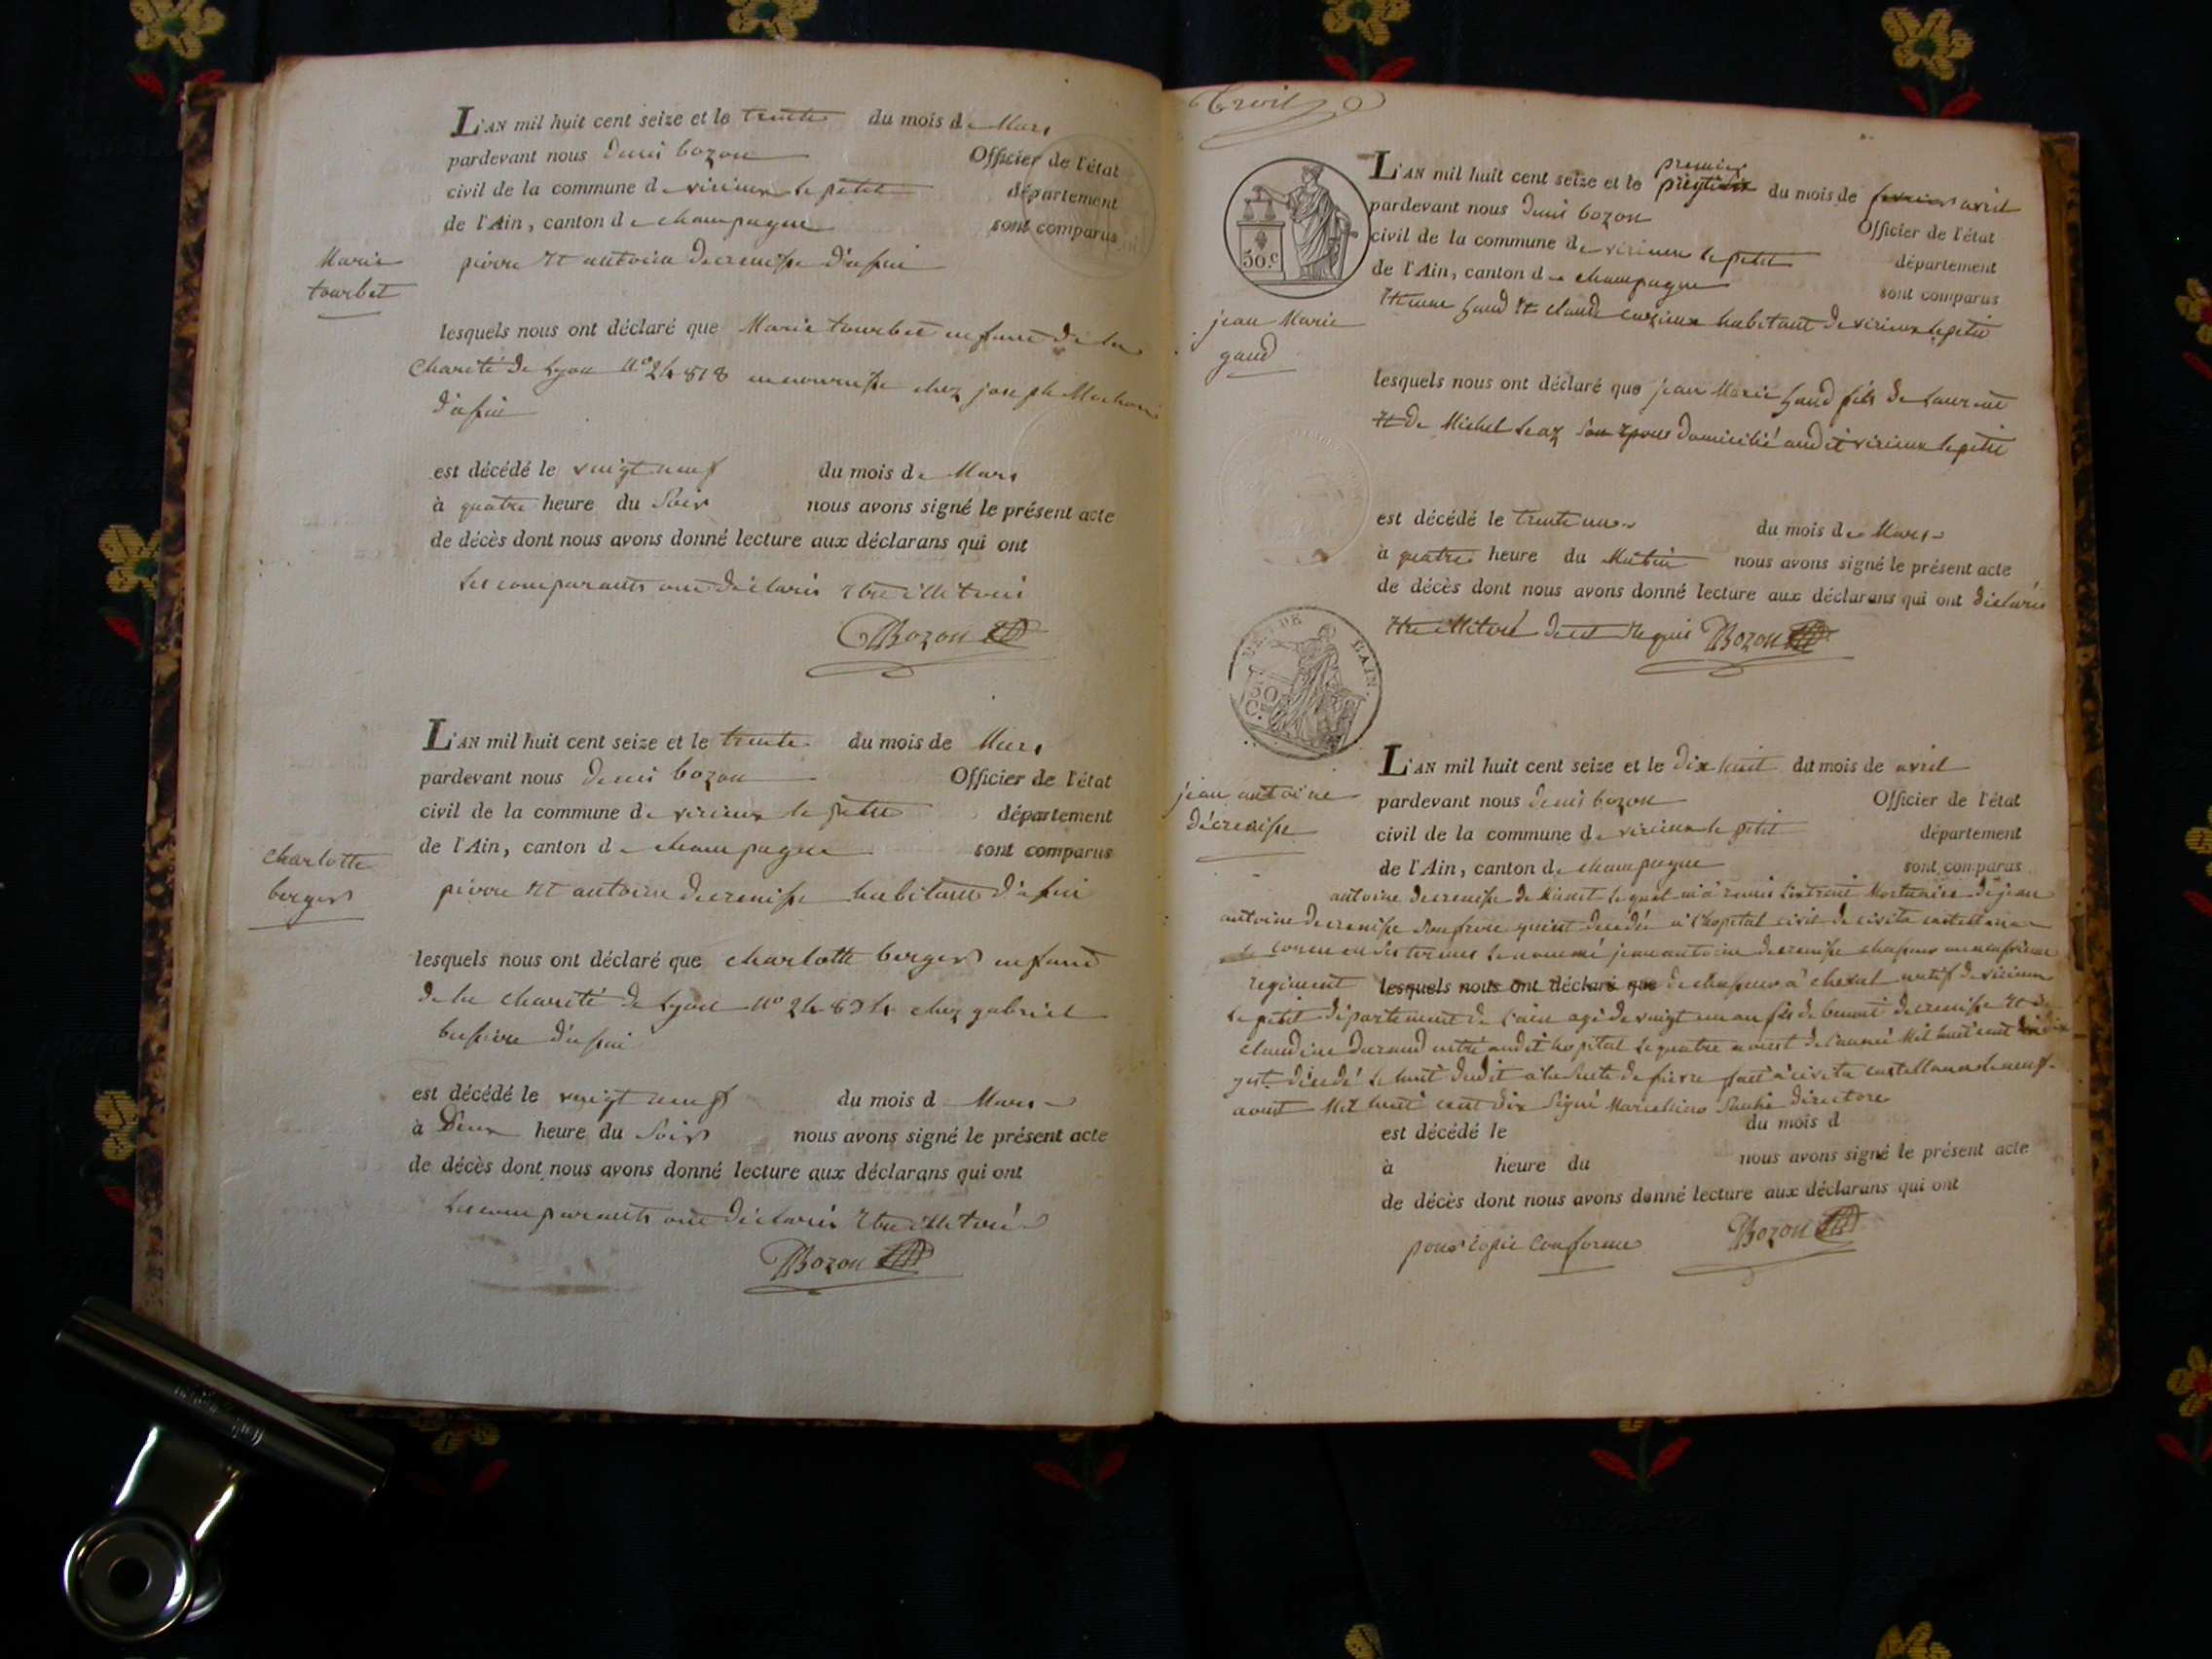 L'AN mil huit cent seize et le trente du mois de Mars
pardevant nous denis bozon Officier de l'état
civil de la commune de virieux le petit département
de l'Ain, canton de champagne sont comparus
Marie
tourbet
pierre et antoine decrenisse d'assin
lesquels nous ont déclaré que Marie tourbet enfant de la
Charité de Lyon n° 24818 en nourrisse chez joseph
d'assin
est décédé le vingt neuf du mois de Mars
à quatre heure du Soir nous avons signé le présent acte
de décès dont nous avons donné lecture aux déclarans qui ont
Les comparants ont déclarés
Bozon
L'AN mil huit cent seize et le trente du mois de Mars
pardevant nous denis bozon Officier de l'état
civil de la commune de virieux le petit département
de l'Ain, canton de champagne sont comparus
charlotte
berger
pierre et antoine decrenisse habitans d'assin
lesquels nous ont déclaré que charlotte berger enfant
de la charité de Lyon n° chez gabriel
d'assin
est décédé le vingt neuf du mois d Mars
à Deux heure du Soir nous avons signé le présent acte
de décès dont nous avons donné lecture aux déclarans qui ont
Les comparants ont déclarés
Bozon
30.c
L'AN mil huit cent seize et le premier du mois de avril
pardevant nous denis bozon Officier de l'état
civil de la commune de virieux le petit département
de l'Ain, canton de champagne sont comparus
jean Marie
gaud
gaud et claude habitant de virieux le petit
lesquels nous ont déclaré que jean Marie gaud fils de Laurent
et de domicilié audit virieux le petit
est décédé le trente un du mois de Mars
à quatre heure du Matin nous avons signé le présent acte
de décès dont nous avons donné lecture aux déclarans qui ont déclarés
de ce requis Bozon
DE L'AIN.
50
C.
L'AN mil huit cent seize et le dix huit du mois de avril
jean antoine
décrenisse
pardevant nous denis bozon Officier de l'état
civil de la commune de virieux le petit département
de l'Ain, canton de champagne sont comparus
antoine decrenisse de lequel m'a remis L'extrait Mortuaire de jean
antoine decrenisse Son frere qui est decedé a L'hopital civil de civita castellana
concu en Ses termes Le nommé jean antoine decrenisse chasseur au neufvieme
regiment lesquels nous ont déclaré que de chasseur à cheval natif de virieux
Le petit département de L'ain agé de vingt un an fils de benoit decrenisse et de
claudine durand entré audit hopital Le quatre aoust de L'année Mil huit cent dix
y est décedé le huit dudit à la Suite de fievre fait à civita castellana le neuf
aoust Mil huit cent dix Signé directore
est décédé le du mois d
à heure du nous avons signé le présent acte
de décès dont nous avons donné lecture aux déclarans qui ont
pour copie conforme Bozon